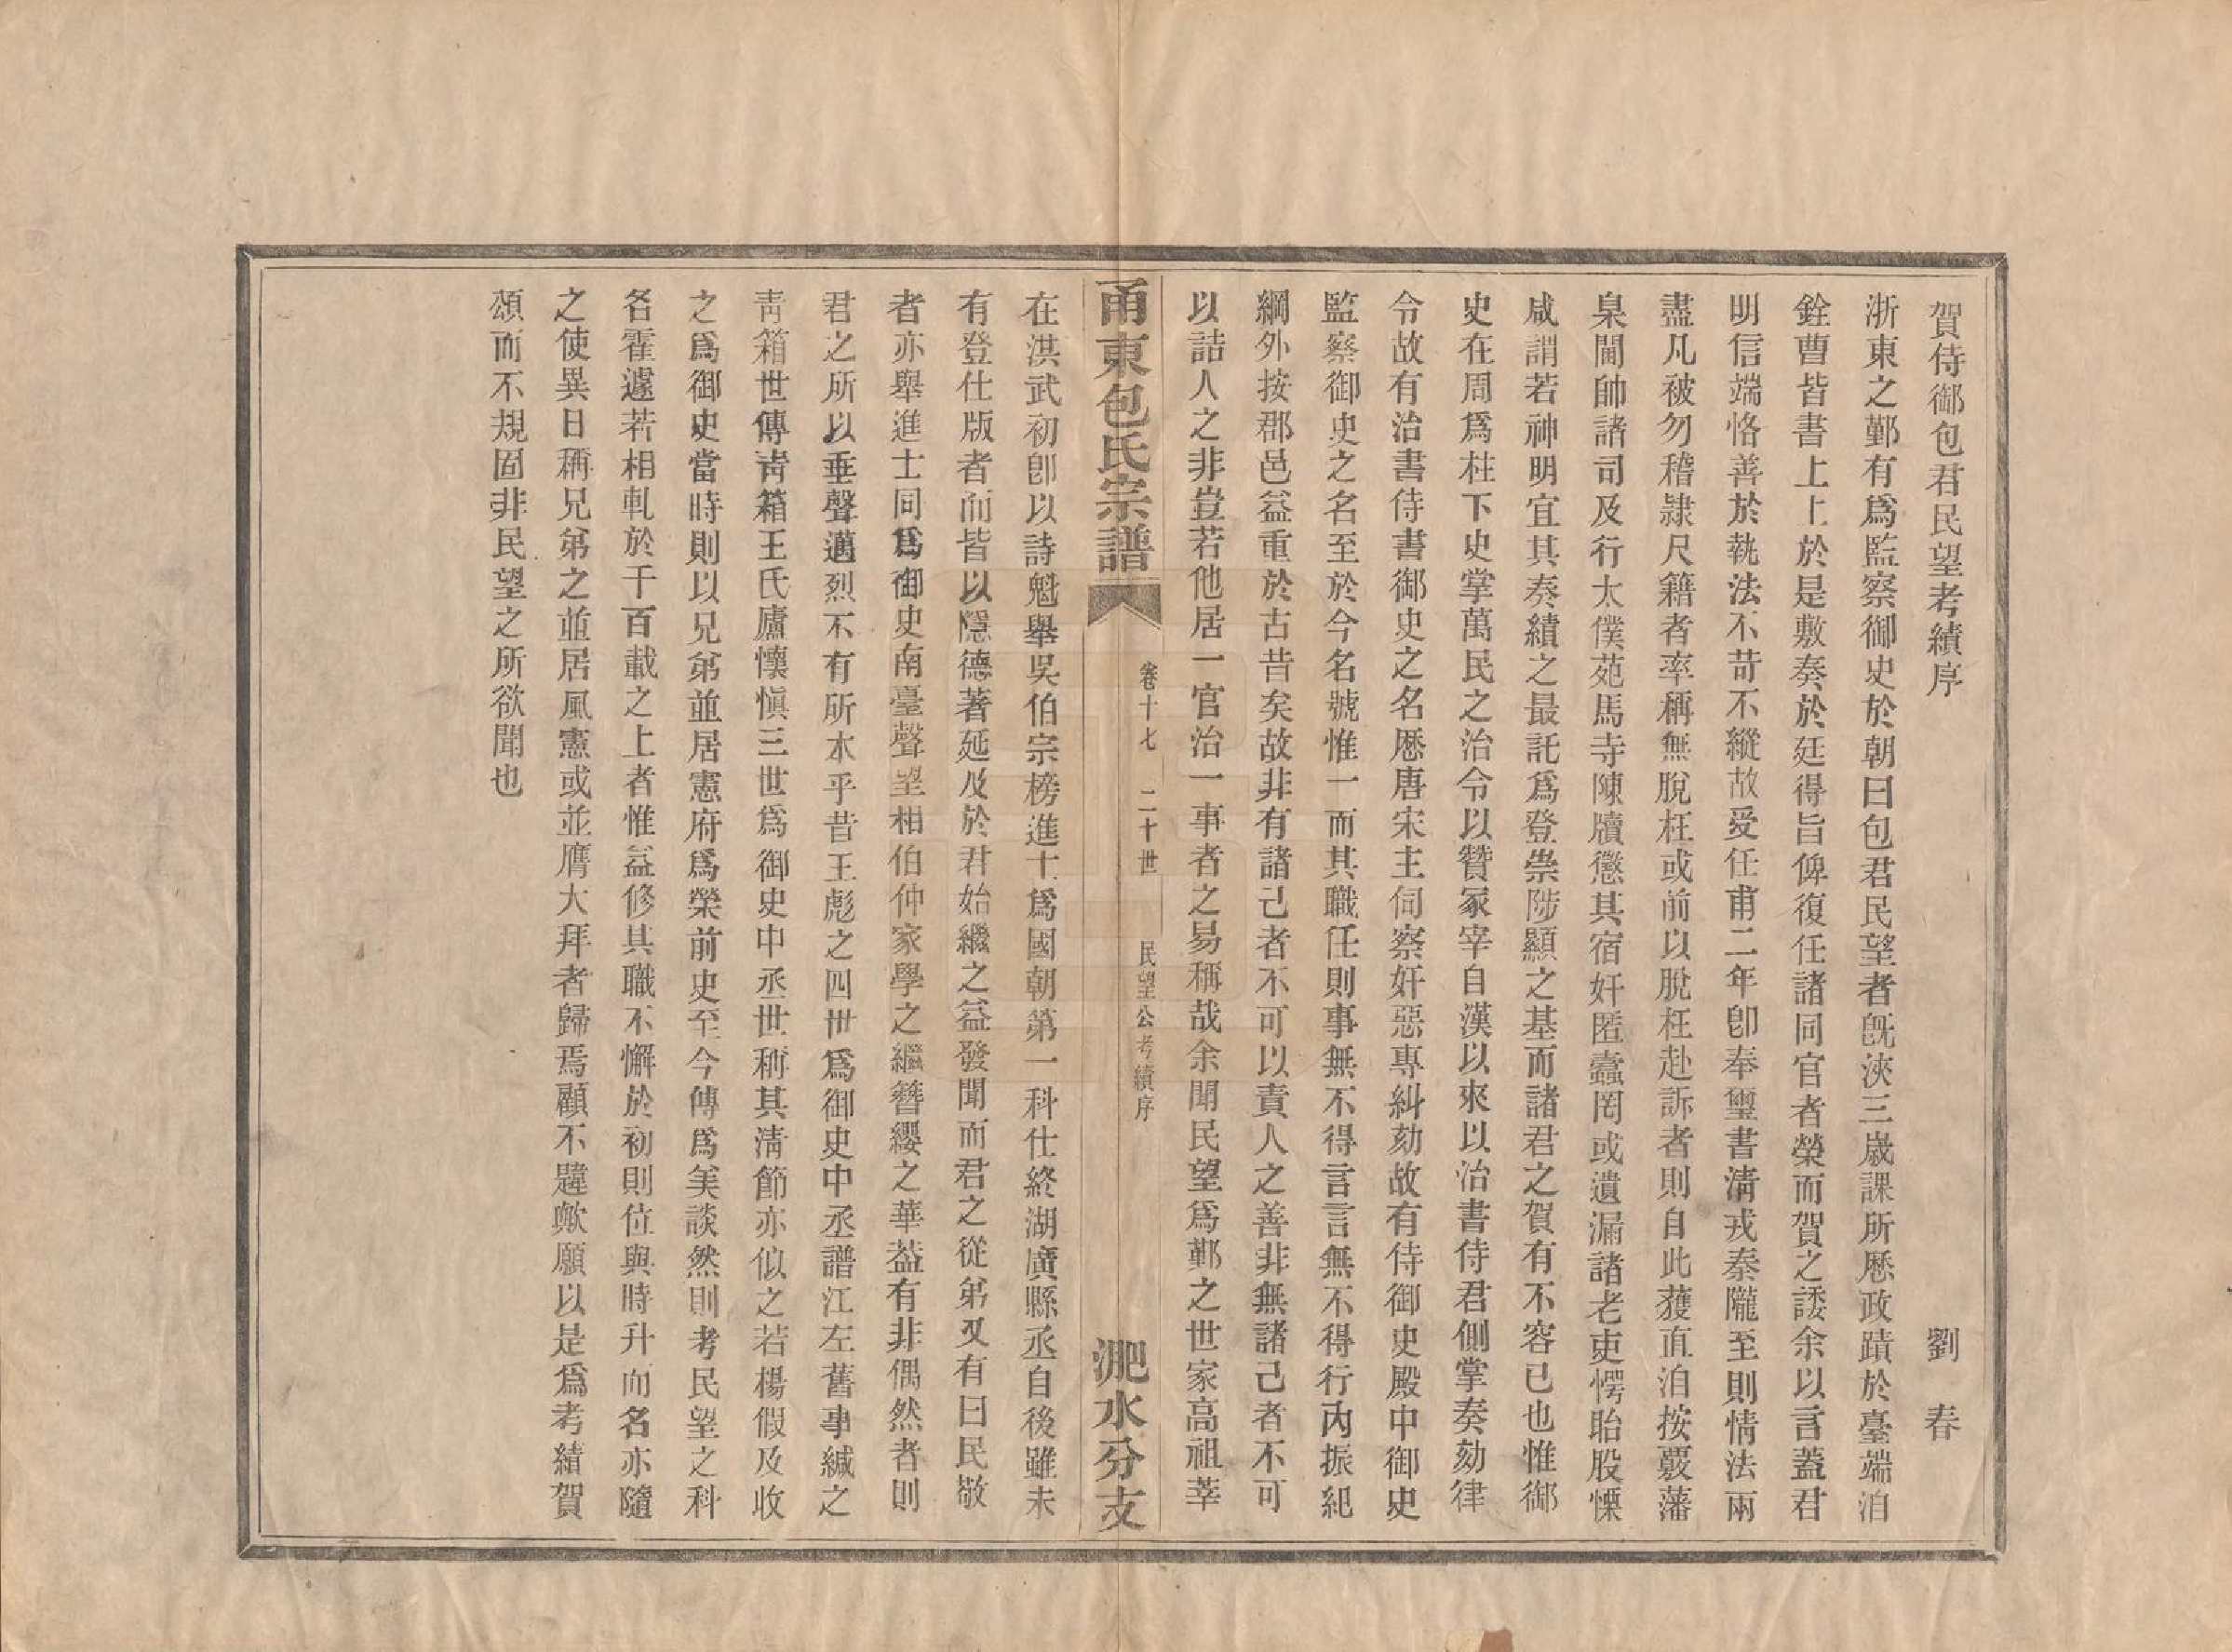 賀侍御包君民望考績序　劉　春
浙東之鄞有爲監察御史於朝曰包君民望者旣浹三歲課所厯政蹟於臺端洎
銓曹皆書上上於是敷奏於廷得旨俾復任諸同官者榮而賀之諉余以言蓋君
明信端恪善於執法不苛不縱故受任甫二年卽奉璽書淸戎秦隴至則情法兩
盡凡被勿稽隷尺籍者率稱無脫枉或前以脫枉赴訴者則自此獲直洎按覈藩
臬閫帥諸司及行太僕苑馬寺陳牘懲其宿奸匿蠹罔或遺漏諸老吏愕眙股慄
咸謂若神明宜其奏績之最託爲登崇陟顯之基而諸君之賀有不容已也惟御
史在周爲柱下史掌萬民之治令以贊冢宰自漢以來以治書侍君側掌奏劾律
令故有治書侍書御史之名厯唐宋主伺察奸惡專糾劾故有侍御史殿中御史
監察御史之名至於今名號惟一而其職任則事無不得言言無不得行內振紀
綱外按郡邑益重於古昔矣故非有諸己者不可以責人之善非無諸己者不可
以詰人之非豈若他居一官治一事者之易稱哉余聞民望爲鄞之世家高祖莘
甬東包氏宗譜　卷十七　二十世　民望公考績序　淝水分支
在洪武初卽以詩魁舉吳伯宗榜進士爲國朝第一科仕終湖廣縣丞自後雖未
有登仕版者而皆以隱德著延及於君始繼之益發聞而君之從弟又有曰民敬
者亦舉進士同爲御史南臺聲望相伯仲家學之繼簪纓之華葢有非偶然者則
君之所以垂聲邁烈不有所本乎昔王彪之四世爲御史中丞譜江左舊事緘之
靑箱世傳靑箱王氏廬懷愼三世爲御史中丞世稱其淸節亦似之若楊假及收
之爲御史當時則以兄弟並居憲府爲榮前史至今傳爲美談然則考民望之科
名霍遽若相軋於千百載之上者惟益修其職不懈於初則位與時升而名亦隨
之使異日稱兄弟之並居風憲或並膺大拜者歸焉顧不韙歟願以是爲考績賀
頌而不規固非民望之所欲聞也